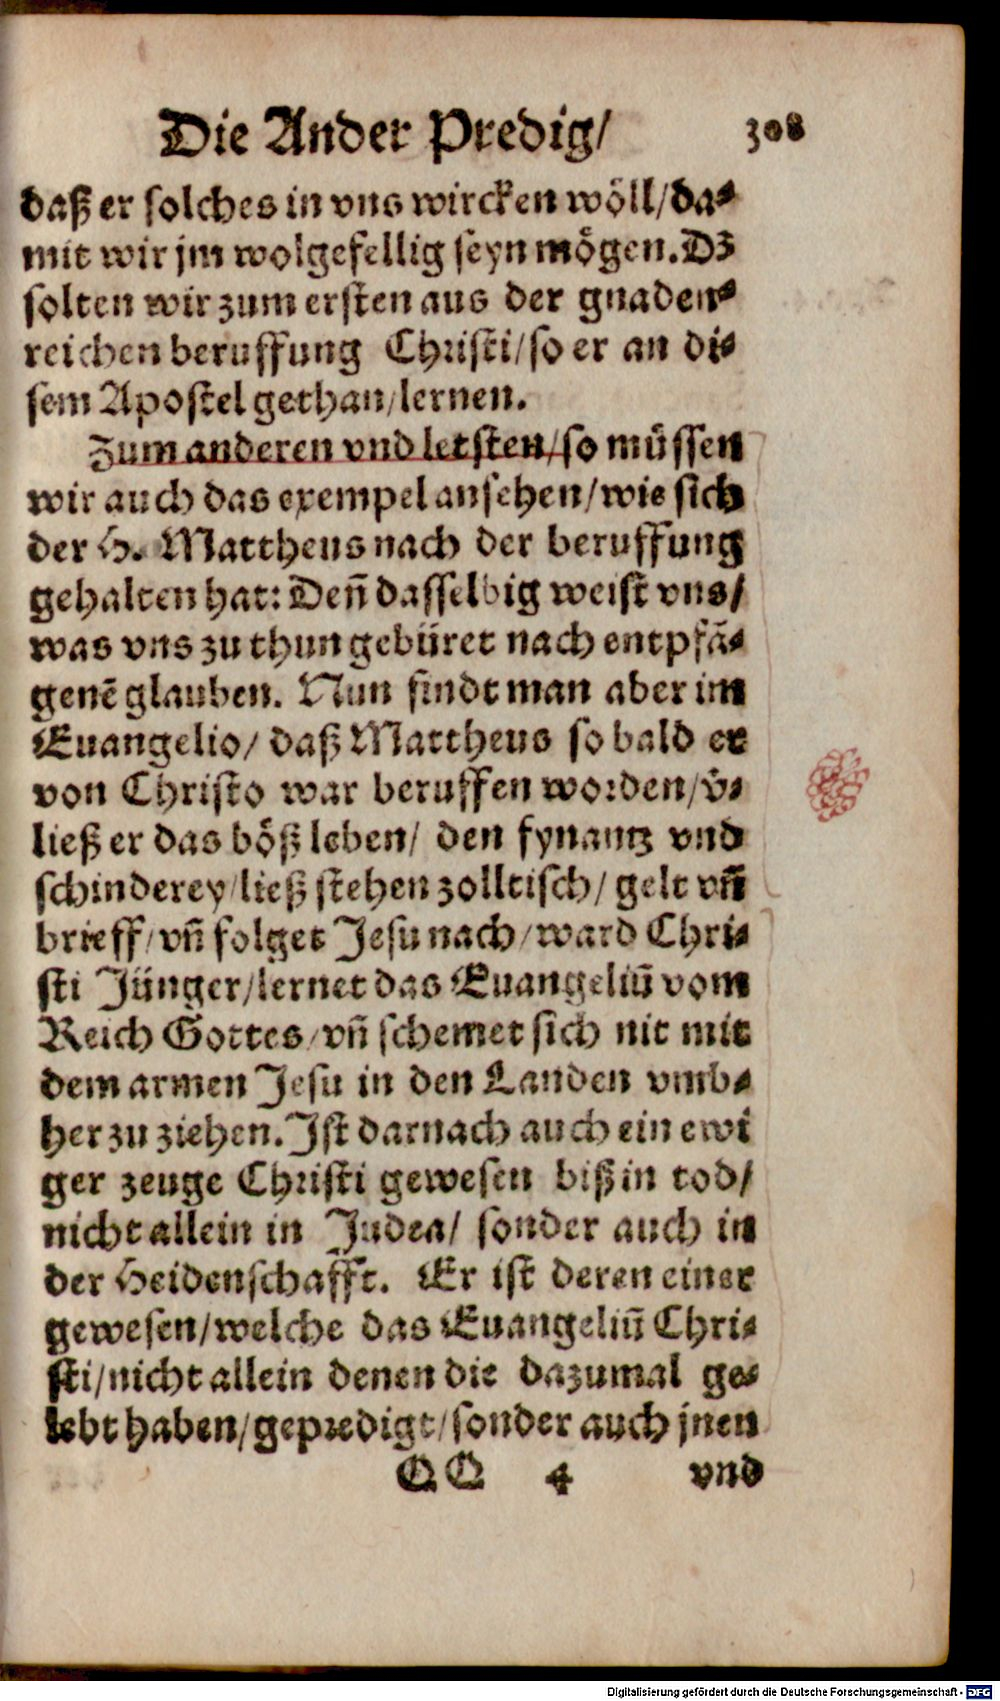 Die Ander Predig/ 308
daß er solches in vns wircken wöll/da-
mit wir jm wolgefellig seyn mögen. Dz
solten wir zum ersten aus der gnaden-
reichen beruffung Christi/so er an di-
sem Apostel gethan/lernen.
Zum anderen vnd letsten/so müssen
wir auch das exempel ansehen/wie sich
der H. Mattheus nach der beruffung
gehalten hat: Deñ dasselbig weist vns/
was vns zu thun gebüret nach entpfā-
genē glauben. Nun findt man aber im
Euangelio/ daß Mattheus so bald er
von Christo war beruffen worden/v̄-
ließ er das böß leben/ den fynantz vnd
schinderey/ließ stehen zolltisch/ gelt vñ
brieff/vñ folget Jesu nach/ward Chri-
sti Jünger/lernet das Euangeliū vom
Reich Gottes/vñ schemet sich nit mit
dem armen Jesu in den Landen vmb-
her zu ziehen. Ist darnach auch ein ewi
ger zeuge Christi gewesen biß in tod/
nicht allein in Judea/ sonder auch in
der Heidenschafft. Er ist deren einer
gewesen/welche das Euangeliū Chri-
sti/nicht allein denen die dazumal ge-
lebt haben/gepredigt/sonder auch jnen
QQ 4 vnd
Digitalisierung gefördert durch die Deutsche Forschungsgemeinschaft - DFG